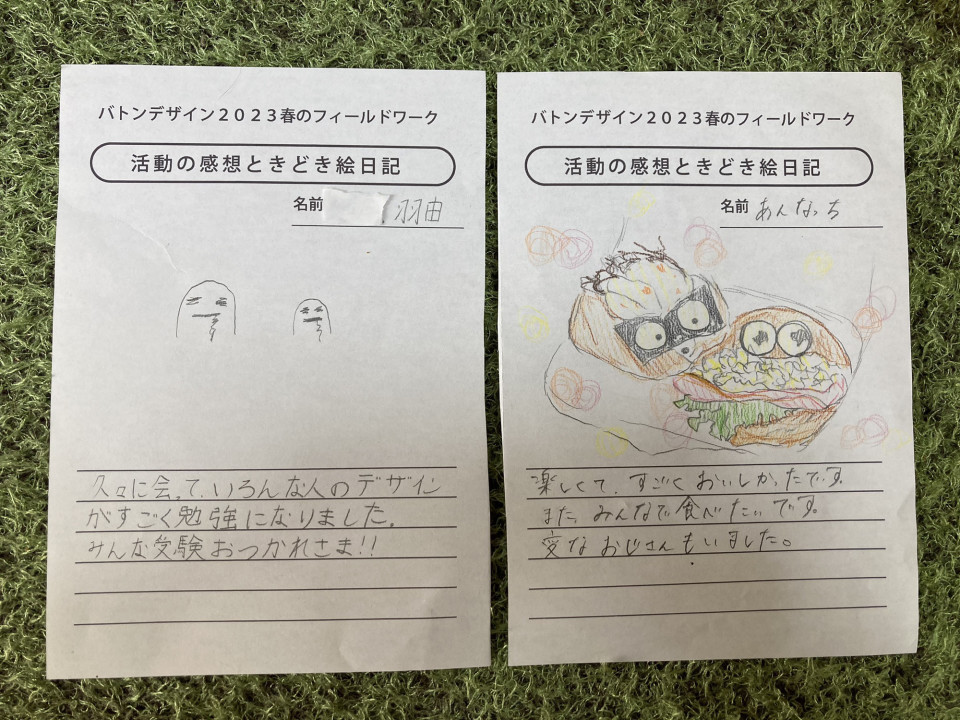 バトンデザイン2023春のフィールドワーク
活動の感想ときどき絵日記
名前 羽由
久々に会って、いろんな人のデザイン
がすごく勉強になりました。
みんな受験おつかれさま!!
バトンデザイン2023春のフィールドワーク
活動の感想ときどき絵日記
名前 あんなっち
楽しくて、すごくおいしかったです。
また、みんなで食べたいです。
変なおじさんもいました。